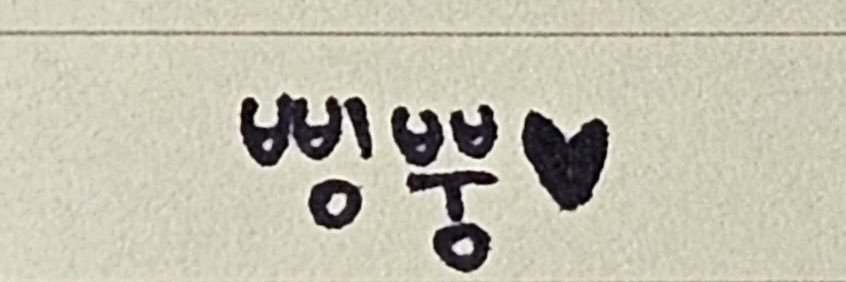 삥뿡♥